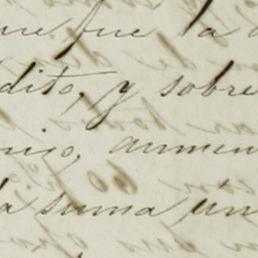 que fue la
dito, y sobre
nigo, aumen
la suma un